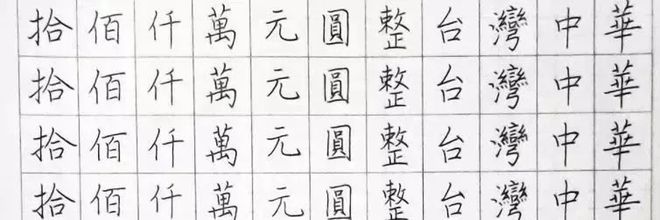 拾佰仟萬元圓整台灣中華
拾佰仟萬元圓整台灣中華
拾佰仟萬元圓整台灣中華
拾佰仟萬元圓整台灣中華